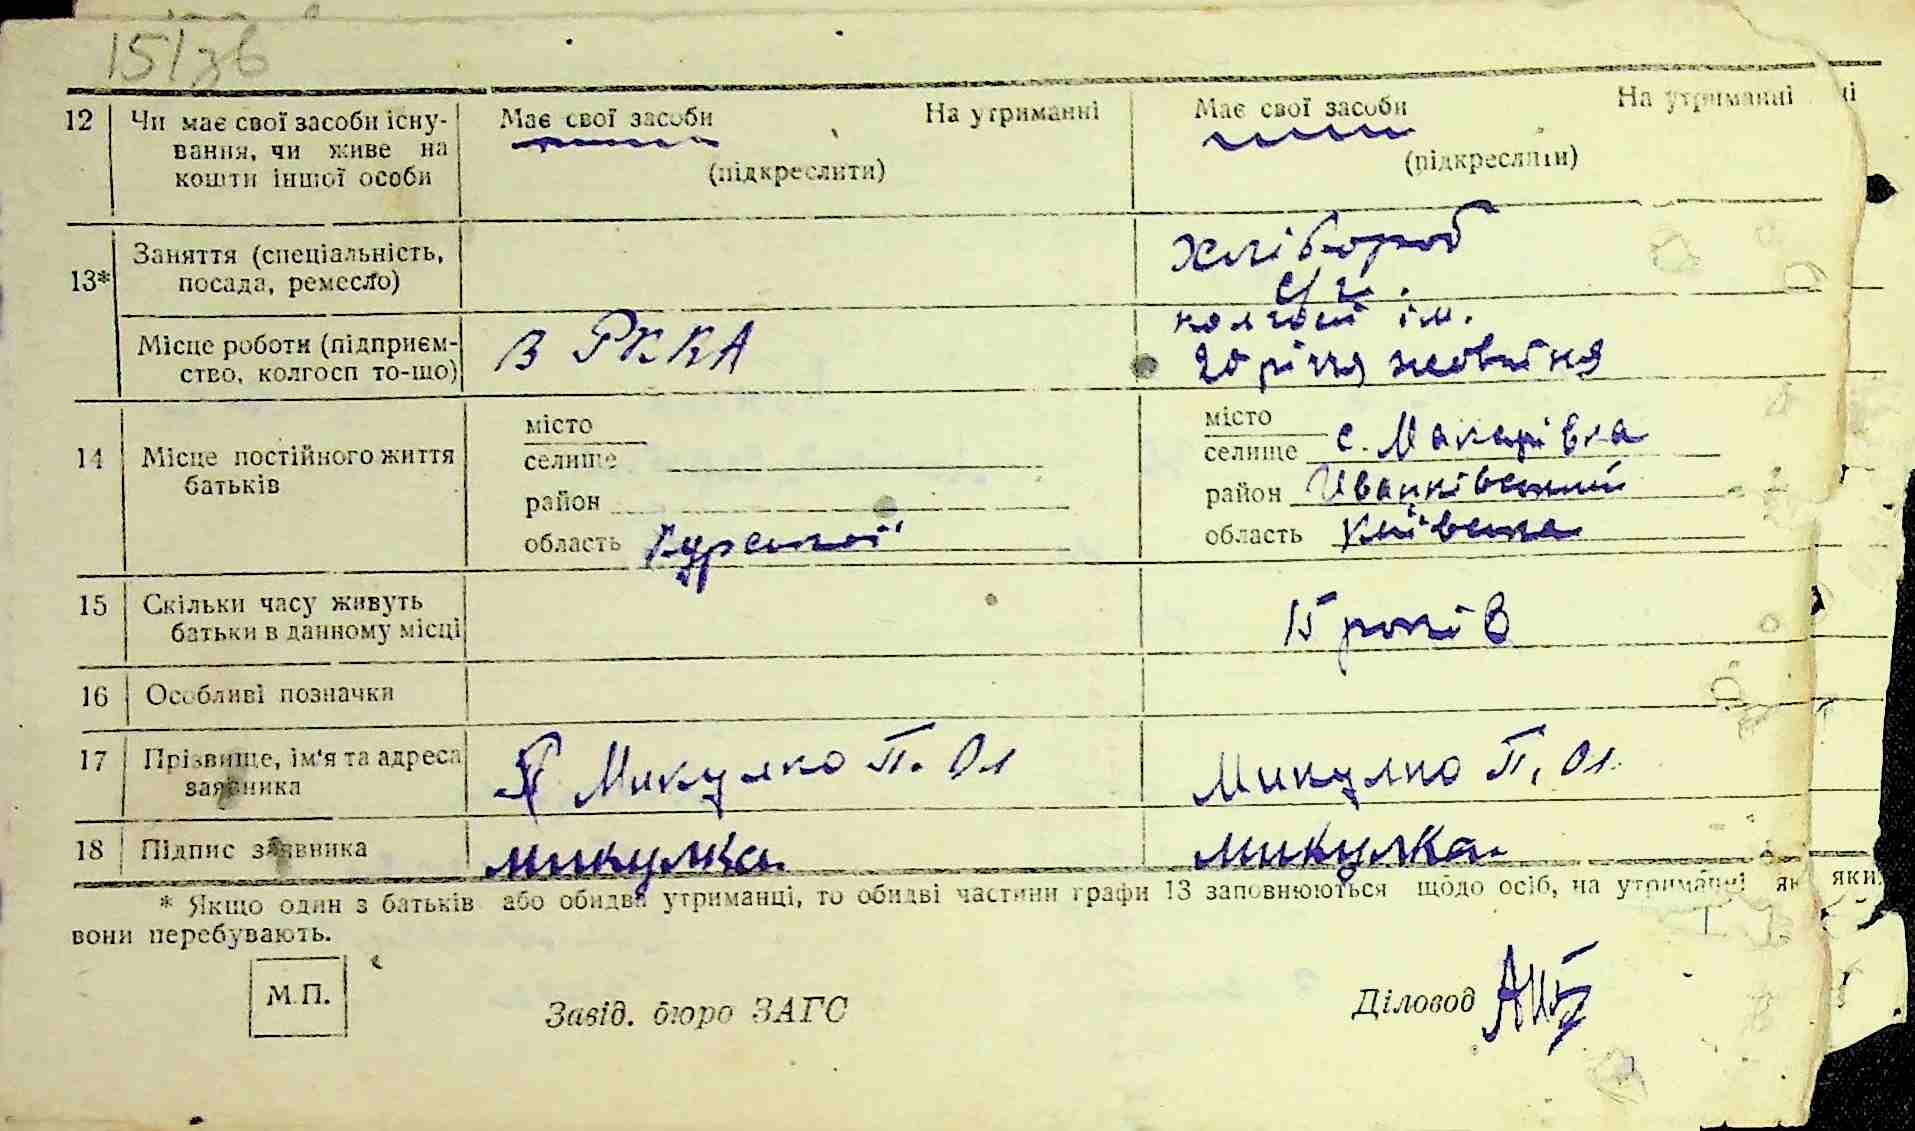 15/зв
12 Чи має свої засоби існу- Має свої засоби На утриманні Має свої засоби На утриманні
вання, чи живе на (підкреслити) (підкреслити)
кошти іншої особи
13* Заняття (спеціальність, Хлібороб
посада, ремесло) с/г.
Місце роботи (підприєм- В РККА колгосп ім.
ство, колгосп то-що) 20 річчя жовтня
14 Місце постійного життя місто місто
батьків селище селище с. Макарівка
район район Иванківський
область Курської область Київська
15 Скільки часу живуть 15 років
батьки в данному місці
16 Особливі позначки
17 Прізвище, ім'я та адреса Микулко П. Ол Микулко П. Ол.
заявника
18 Підпис заявника микулка. микулка.
* Якщо один з батьків або обидва утриманці, то обидві частини графи 13 заповнюються щодо осіб, на утриманні як яки
вони перебувають.
М.П. Завід. бюро ЗАГС Діловод